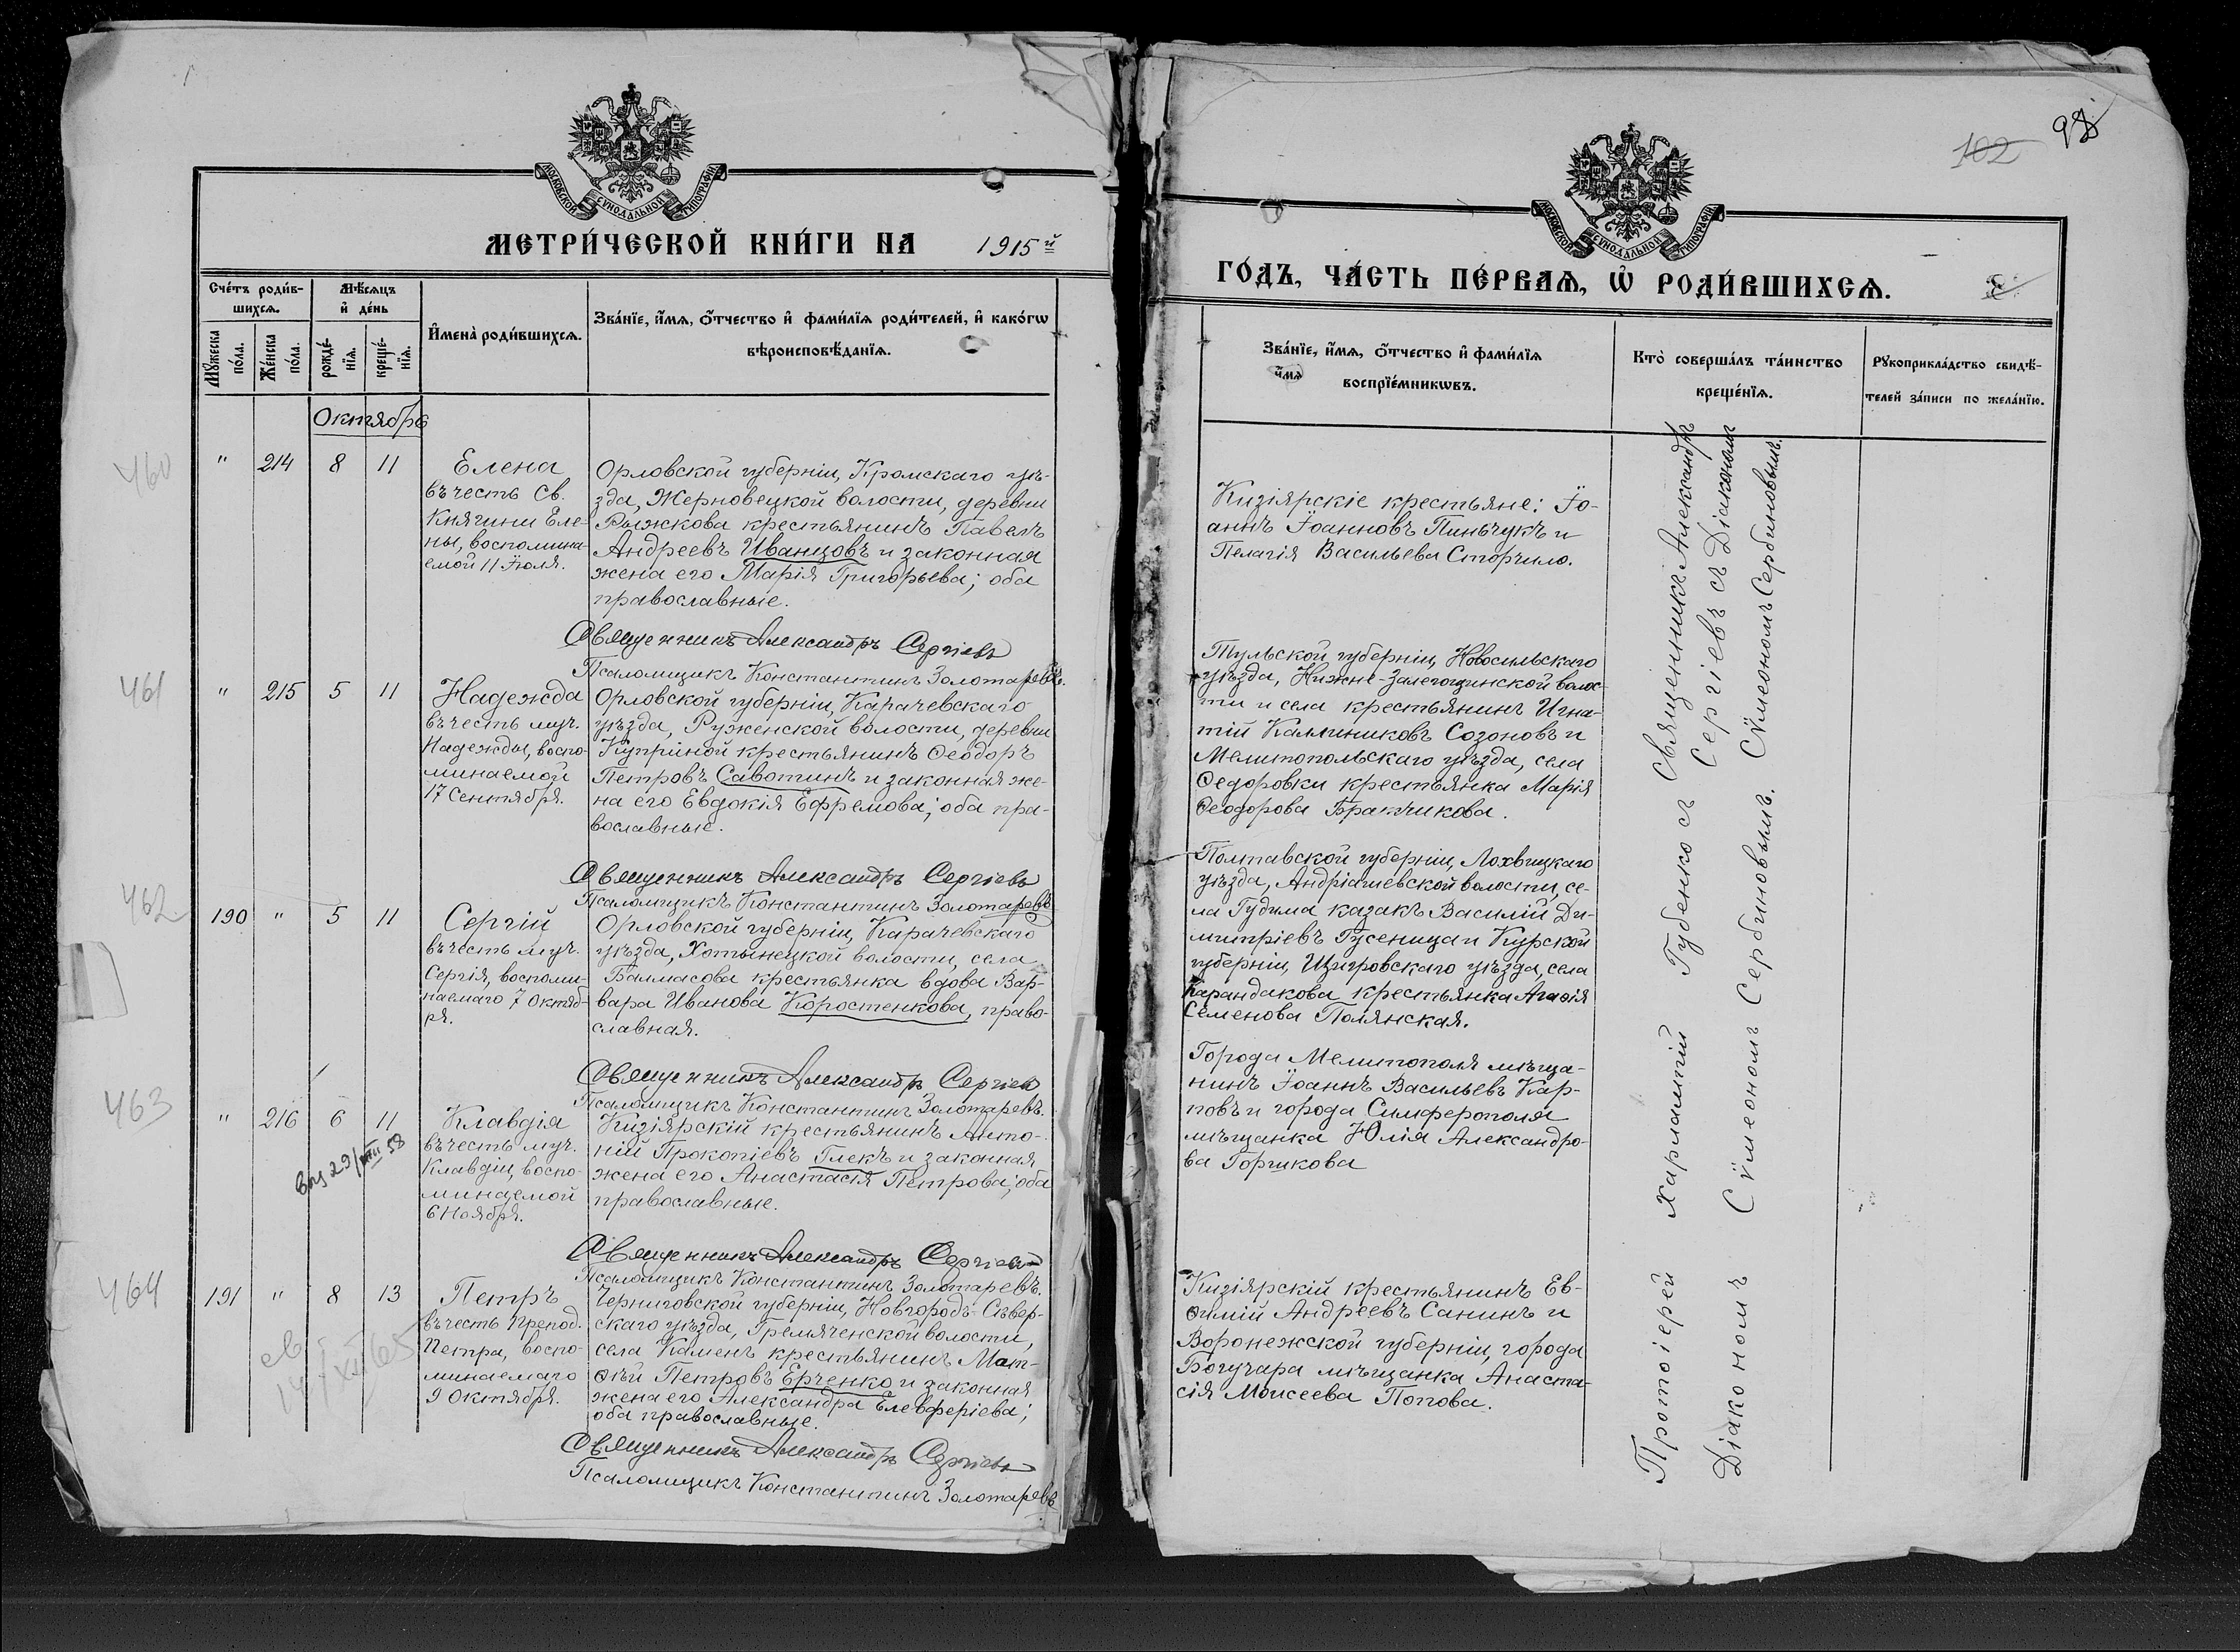 МОСКОВСКОЙ СѴНОДАЛЬНОЙ ТИПОГРАФІИ
МЕТРИ́ЧЕСКОЙ КНИ́ГИ НА 1915й
Сче́тъ роди́в-
шихсѧ.
Мѣ́сѧцъ
и҆ де́нь
Мꙋ́жеска
по́ла.
Же́нска
по́ла.
рожде́-
нїѧ.
креще́-
нїѧ.
И҆мена̀ роди́вшихсѧ.
Зва́нїе, и҆́мѧ, ѻ҆́тчество и҆ фами́лїѧ роди́телей, и҆ како́гѡ
вѣроисповѣ́данїѧ.
Октябрь
460
" 214 8 11
Елена
въ честь Св.
Княгини Еле-
ны, воспомина-
емой 11 Іюля.
Орловской губерніи, Кромскаго уѣ-
зда, Жерновецкой волости, деревни
Рыжкова крестьянинъ Павелъ
Андреевъ Иванцовъ и законная
жена его Марія Григорьева; оба
православные.
Священникъ Александръ Сергіевъ
Псаломщикъ Константинъ Золотаревъ.
461
" 215 5 11
Надежда
въ честь муч.
Надежды, воспо-
минаемой
17 Сентября.
Орловской губерніи, Карачевскаго
уѣзда, Руженской волости, деревни
Куприной крестьянинъ Ѳеодоръ
Петровъ Савотинъ и законная же-
на его Евдокія Ефремова; оба пра-
вославные.
Священникъ Александръ Сергіевъ
Псаломщикъ Константинъ Золотаревъ
462
190 " 5 11
Сергій
въ честь муч.
Сергія, воспоми-
наемаго 7 Октяб-
ря.
Орловской губерніи, Карачевскаго
уѣзда, Хотынецкой волости, села
Балмасова крестьянка вдова Вар-
вара Иванова Коростенкова, право-
славная.
Священникъ Александръ Сергіевъ
Псаломщикъ Константинъ Золотаревъ.
463
" 216 6 11
29/VIII 58
Клавдія
въ честь муч.
Клавдіи, воспо-
минаемой
6 Ноября.
Кизіярскій крестьянинъ Анто-
ній Прокопіевъ Глекъ и законная
жена его Анастасія Петрова; оба
православные.
Священникъ Александръ Сергіевъ
Псаломщикъ Константинъ Золотаревъ.
464
191 " 8 13
Петръ
въ честь Препод.
Петра, воспо-
минаемаго
9 Октября.
Черниговской губерніи, Новгородъ-Сѣвер-
скаго уѣзда, Гремяченской волости,
села Каменъ крестьянинъ Мат-
ѳѣй Петровъ Ерченко и законная
жена его Александра Елевферіева;
оба православные.
Священникъ Александръ Сергіевъ
Псаломщикъ Константинъ Золотаревъ
102
МОСКОВСКОЙ СѴНОДАЛЬНОЙ ТИПОГРАФІИ
ГО́ДЪ, ЧА́СТЬ ПЕ́РВАѦ, Ѡ҆ РОДИ́ВШИХСѦ.
Зва́нїе, и҆́мѧ, ѻ҆́тчество и҆ фами́лїѧ
воспрїе́мникѡвъ.
Кто̀ соверша́лъ та́инство
креще́нїѧ.
Рꙋкоприкла́дство свидѣ́-
телей за́писи по жела́нїю.
Кизіярскіе крестьяне: Іо-
аннъ Іоанновъ Пинчукъ и
Пелагія Васильева Сторчило.
Тульской губерніи, Новосильскаго
уѣзда, Нижне-Залегощинской волос-
ти и села крестьянинъ Игна-
тій Калиниковъ Созоновъ и
Мелитопольскаго уѣзда, села
Ѳедоровки крестьянка Марія
Ѳеодорова Братчикова.
Полтавской губерніи, Лохвицкаго
уѣзда, Андріяшевской волости, се-
ла Гудима казакъ Василій Ди-
митріевъ Гусеница и Курской
губерніи, Щигровскаго уѣзда, села
Карандакова крестьянка Агаѳія
Семенова Полянская.
Города Мелитополя мѣща-
нинъ Іоаннъ Васильевъ Кар-
повъ и города Симферополя
мѣщанка Юлія Александро-
ва Горшкова
Кизіярскій крестьянинъ Ев-
ѳимій Андреевъ Санинъ и
Воронежской губерніи, города
Богучара мѣщанка Анаста-
сія Моисеева Попова.
Священникъ Александръ
Сергіевъ съ Діакономъ
Сѵмеономъ Сербиновымъ.
Протоіерей Харлампій Губенко съ
Діакономъ Сѵмеономъ Сербиновымъ.